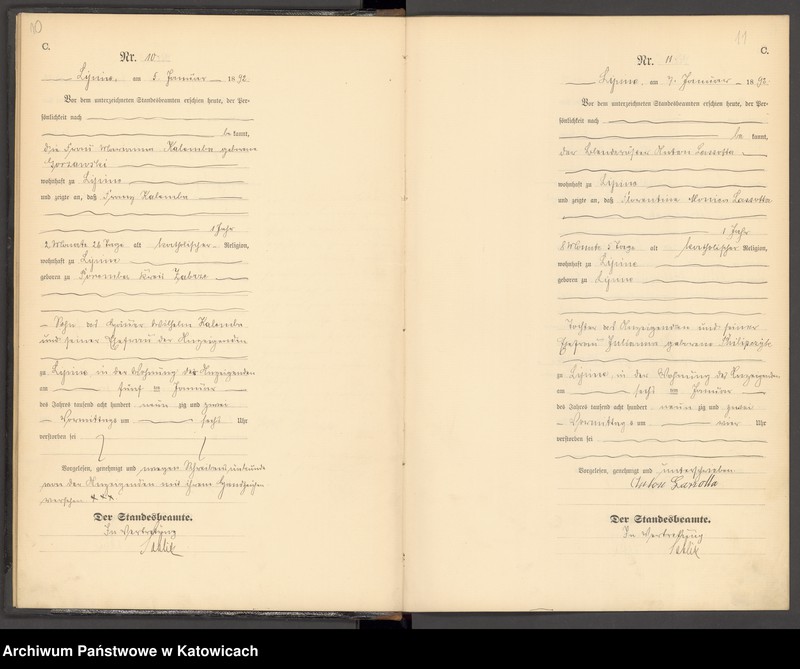 10
C.
Nr. 10
Lipine, am 5. Januar 1892.
Vor dem unterzeichneten Standesbeamten erschien heute, der Per-
sönlichkeit nach
be kannt,
die Frau Marianna Kalemba geborene
wohnhaft zu Lipine
und zeigte an, daß Kalemba
1 Jahr
2 Monate 26 Tage alt katholischer Religion,
wohnhaft zu Lipine
geboren zu Poremba Kreis Zabrze
Sohn des Häuer Wilhelm Kalemba
und seiner Ehefrau der Anzeigenden
zu Lipine in der Wohnung der Anzeigenden
am fünften Januar
des Jahres tausend acht hundert neun zig und zwei
Vormittags um sechs Uhr
verstorben sei
Vorgelesen, genehmigt und wegen Schreibensunkunde
von der Anzeigenden mit ihrem Handzeichen
versehen xxx
Der Standesbeamte.
In Vertretung
11
C.
Nr. 11
Lipine, am 7. Januar 1892.
Vor dem unterzeichneten Standesbeamten erschien heute, der Per-
sönlichkeit nach
be kannt,
der Anton Lassotta
wohnhaft zu Lipine
und zeigte an, daß Florentine Monica Lassotta
1 Jahr
8 Monate 5 Tage alt katholischer Religion,
wohnhaft zu Lipine
geboren zu Lipine
Tochter des Anzeigenden und seiner
Ehefrau Julianna geborene
zu Lipine in der Wohnung des Anzeigenden
am sechsten Januar
des Jahres tausend acht hundert neun zig und zwei
Vormittags um vier Uhr
verstorben sei
Vorgelesen, genehmigt und unterschrieben
Anton Lassotta
Der Standesbeamte.
In Vertretung
Archiwum Państwowe w Katowicach